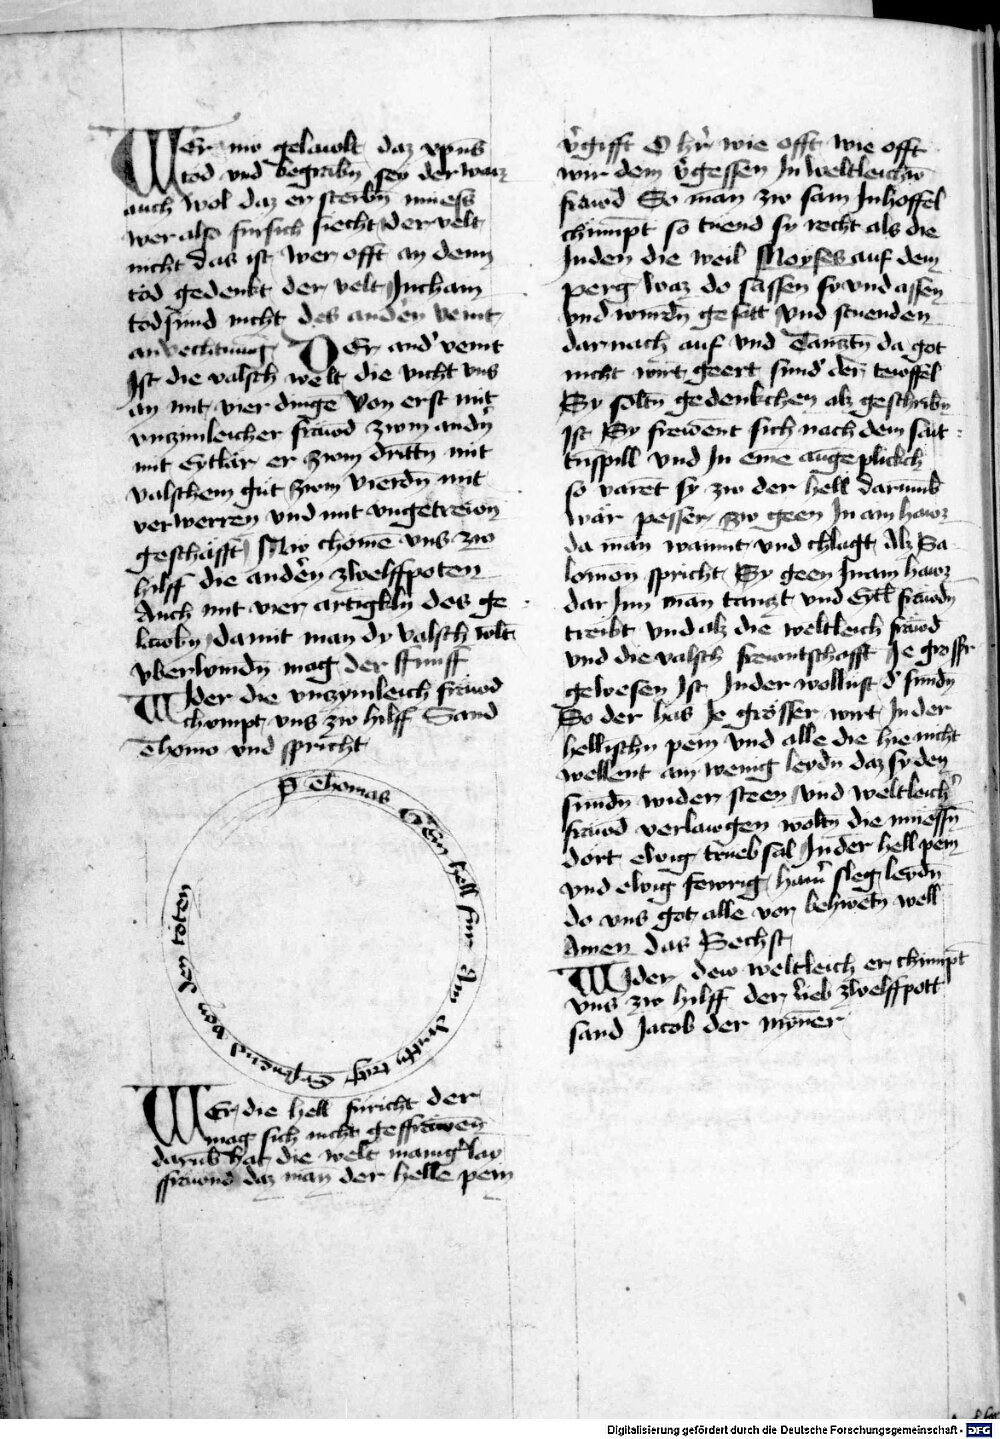 WEr nw gelawbt daz xpūs
tod vnd begrabn sey der waiz
auch wol daz er sterbn muess
wer also fursich siecht der velt
nicht das ist wer offt an denn
tod gedenkt der velt Incham
todsund nicht des anderñ veint
anvechtung DEr and' veint
Ist die valsch welt die vicht vns
an mit vier dinge Von erst mit
vnzimleicher frawd zwm andn̄
mit Eytlär er zwm drittn̄ mit
valschem gut zwm vierdn̄ mit
verwerren vnd mit vngetrewn̄
geschäfft Nw chomē vns zw
hilff die anderñ zwelffpoten
Auch mit vier artigkln̄ des ge
lawbn̄ damit man dy valsch welt
vberwindn̄ mag der ffunff
WIder die vnzymleich frawd
chympt vns zw hilff Sand
Thomo vnd spricht
S Thomas Gen hell fur Am dritn̄ tag Erstuend von den töten
WEr die hell furicht der
mag sich nicht geffrewen̄
darūb hat die welt manigᵉlay
ffrawnd daz man der helle pein
v̓gifft O hr̓ wie offt wie offt
wir dem v̓gessen In weltleichn̄
frawd So man zw sam Inhoffel
chümpt so tuend sy recht als die
Juden die weil Moyses auf dem
perg waz do sassen sy vnd assen
vnd wurdn̄ gesätt vnd stuenden
darnach auf vnd Tanztn̄ da got
nicht wirt geert sund' der tewffel
Sy soltn̄ gedenkchen alz geschribn̄
Ist Sy frewent sich nach dem sait
tnspill vnd In eine augeplickch
so varet sy zw der hell darumb
wär pesser zw geen In am hawz
da man waint vnd chlagt Alz Sa
lomon spricht Sy geen Inam hawz
dar Inn man tanzt vnd Eytl frawdn̄
treibt vnd alz die weltleich frawd
vnd die valsch frewntschafft Je grosser
gewesen Ist Inder wollust d' sundn̄
So der has Je grösser wirt In der
hellischn̄ pein vnd alle die hie nicht
wellent ain wenig leydn̄ daz sy den
sundn̄ widersteen vnd weltleich'
frawd verlawgen woltn̄ die muessn̄
dort ewig truebsal Inder hell pein
vnd ewig fewrig ham̄' sleg leydn̄
do vns got alle vor behuetn̄ well
Amen das Sechst
WIder dew weltleich er chümpt
vns zw hilff der lieb zwelffpott
sand Jacob der mynner